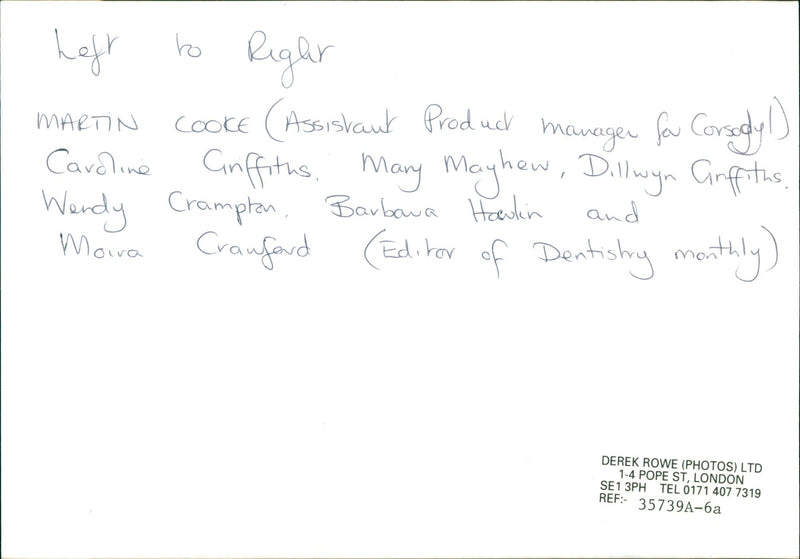 Left to Right
MARTIN COOKE (Assistant Product manager for Corsodyl)
Caroline Griffiths, Mary Mayhew, Dillwyn Griffiths,
Wendy Crampton, Barbara and
Moira Crawford (Editor of Dentistry monthly)
DEREK ROWE (PHOTOS) LTD
1-4 POPE ST, LONDON
SE1 3PH TEL 0171 407 7319
REF:- 35739A-6a